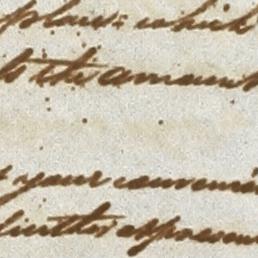 place: which
to the amount
your conveni
further